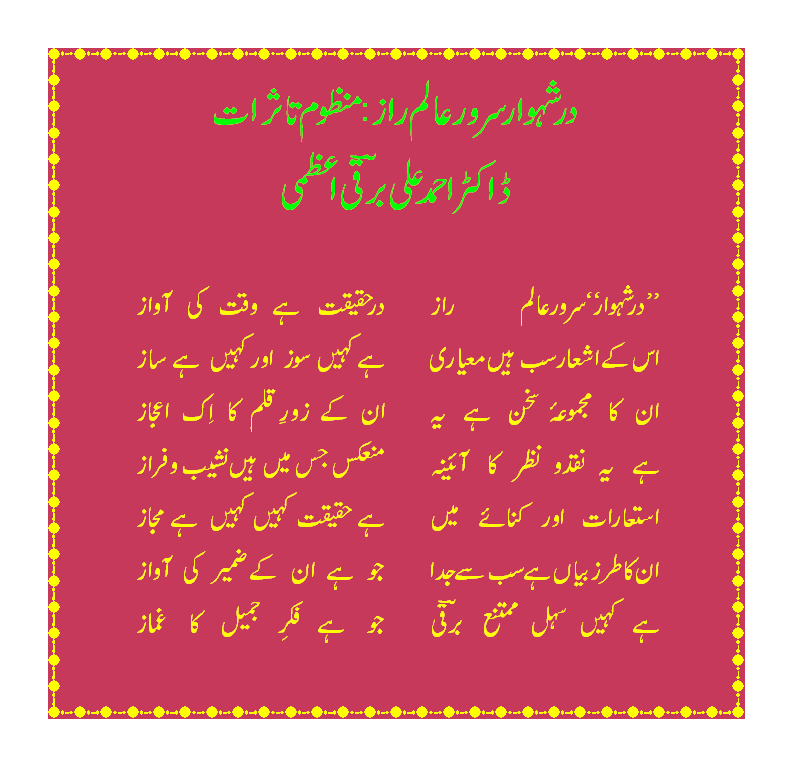 درشہوار سرور عالم راز : منظوم تاثرات
ڈاکٹر احمد علی برقیؔ اعظمی
’’درشہوار‘‘ سرور عالم راز درحقیقت ہے وقت کی آواز
اس کے اشعار سب ہیں معیاری ہے کہیں سوز اور کہیں ہے ساز
ان کا مجموعۂ سخن ہے یہ ان کے زورِ قلم کا اِک اعجاز
ہے یہ نقدو نظر کا آئینہ منعکس جس میں ہیں نشیب و فراز
استعارات اور کنائے میں ہے حقیقت کہیں کہیں ہے مجاز
ان کا طرز بیاں ہے سب سے جدا جو ہے ان کے ضمیر کی آواز
ہے کہیں سہل ممتنع برقیؔ جو ہے فکرِ جمیل کا غماز